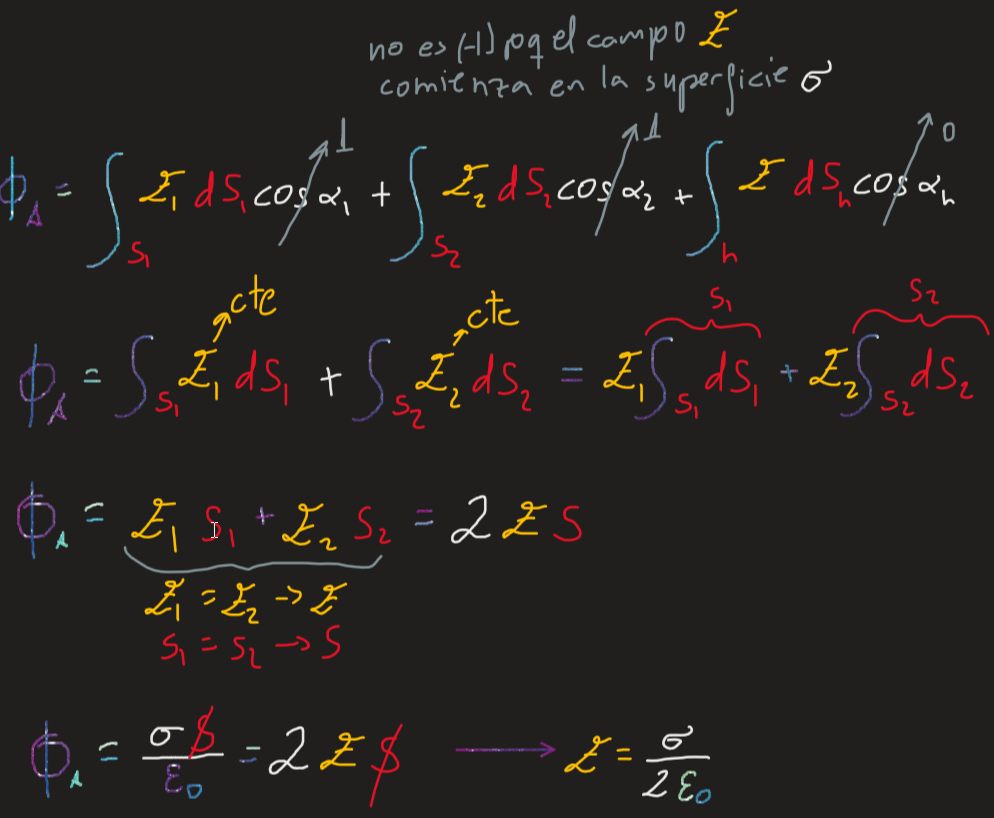 no es (-1) pq el campo E
comienza en la superficie σ
ϕ_A = ∫_{S₁} E₁ dS₁ cos α₁ ↗1 + ∫_{S₂} E₂ dS₂ cos α₂ ↗1 + ∫_h E dS_h cos α_h ↗0
cte cte S₁ S₂
ϕ_A = ∫_{S₁} E₁ dS₁ + ∫_{S₂} E₂ dS₂ = E₁ ∫_{S₁} dS₁ + E₂ ∫_{S₂} dS₂
ϕ_A = E₁ S₁ + E₂ S₂ = 2 E S
E₁ = E₂ → E
S₁ = S₂ → S
ϕ_A = σ S / ε₀ = 2 E S → E = σ / 2 ε₀